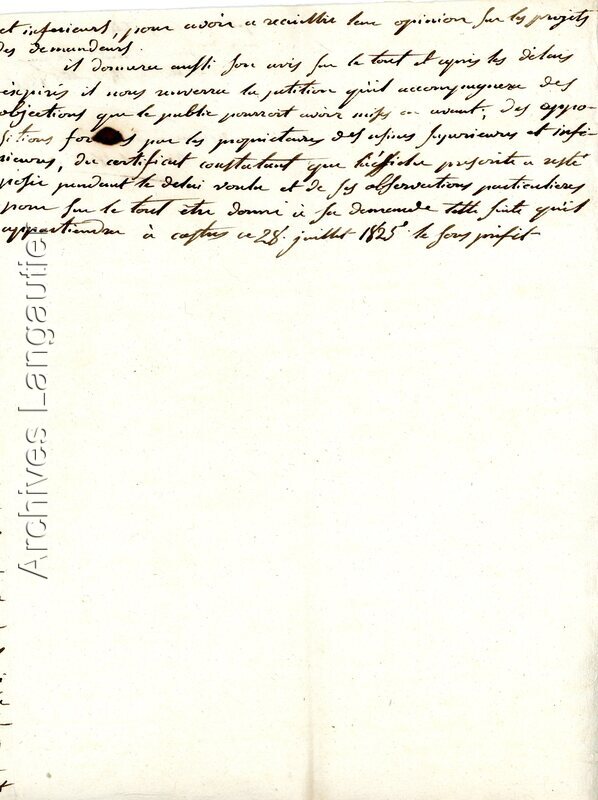 et inferieurs, pour avoir a recueillir leur opinion sur les projets
des demandeurs.
il donnera aussi son avis sur le tout et après les délais
expirés il nous renverra la petition qu'il accompagnera des
objections que le public pourrait avoir mises en avant, des oppo-
sitions par les proprietaires des usines superieures et infé-
rieures, du certificat constatant que l'affiche prescrite a resté
posée pendant le delai voulu et de ses observations particulieres
pour sur le tout être donné à sa demande telle suite qu'il
appartiendra à castres ce 28 juillet 1825 le sous préfet
Archives Langautie